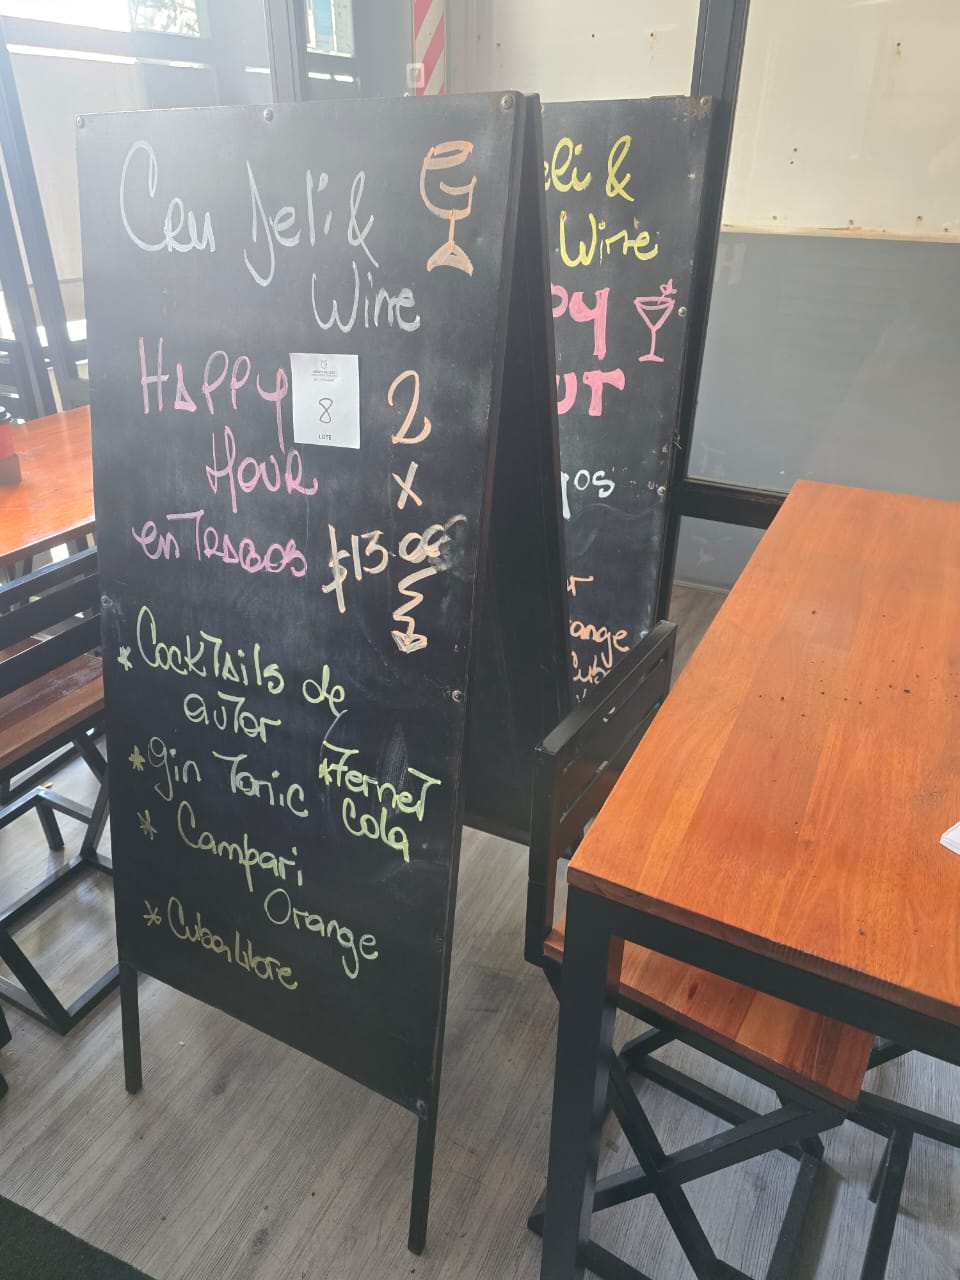 Cru Deli &
Wine
Happy
Hour
en Tragos
2
x
$13.00
* Cocktails de
autor
* Gin Tonic
* Fernet
Cola
* Campari
Orange
* Cuba libre
8
LOTE
eli &
Wine
py
ur
gos
ange